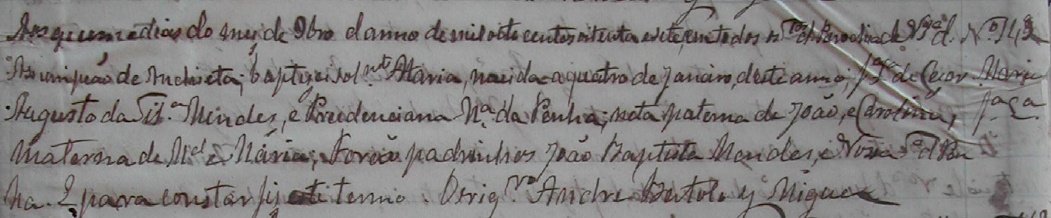 Aos quinse dias do mes de 8bro d anno de mil oito centos oitenta e sete, em todos os da Parochia de Nª Sª d. Nº 142
Assumpção de Anchieta; baptizei solte Maria, nascida a quatro de Janairo, deste anno, fª de Cezar Maria
Augusto da Silª Mendes, e Prudenciana Nª da Penha; neta paterna de João, e Carolina, paga
materna de Mel e Maria; Forão padrinhos João Baptista Mendes, e Nossa Sª d Pen
ha. E para constar fiz este termo. O vigrº Andre Bertolo y Miguez